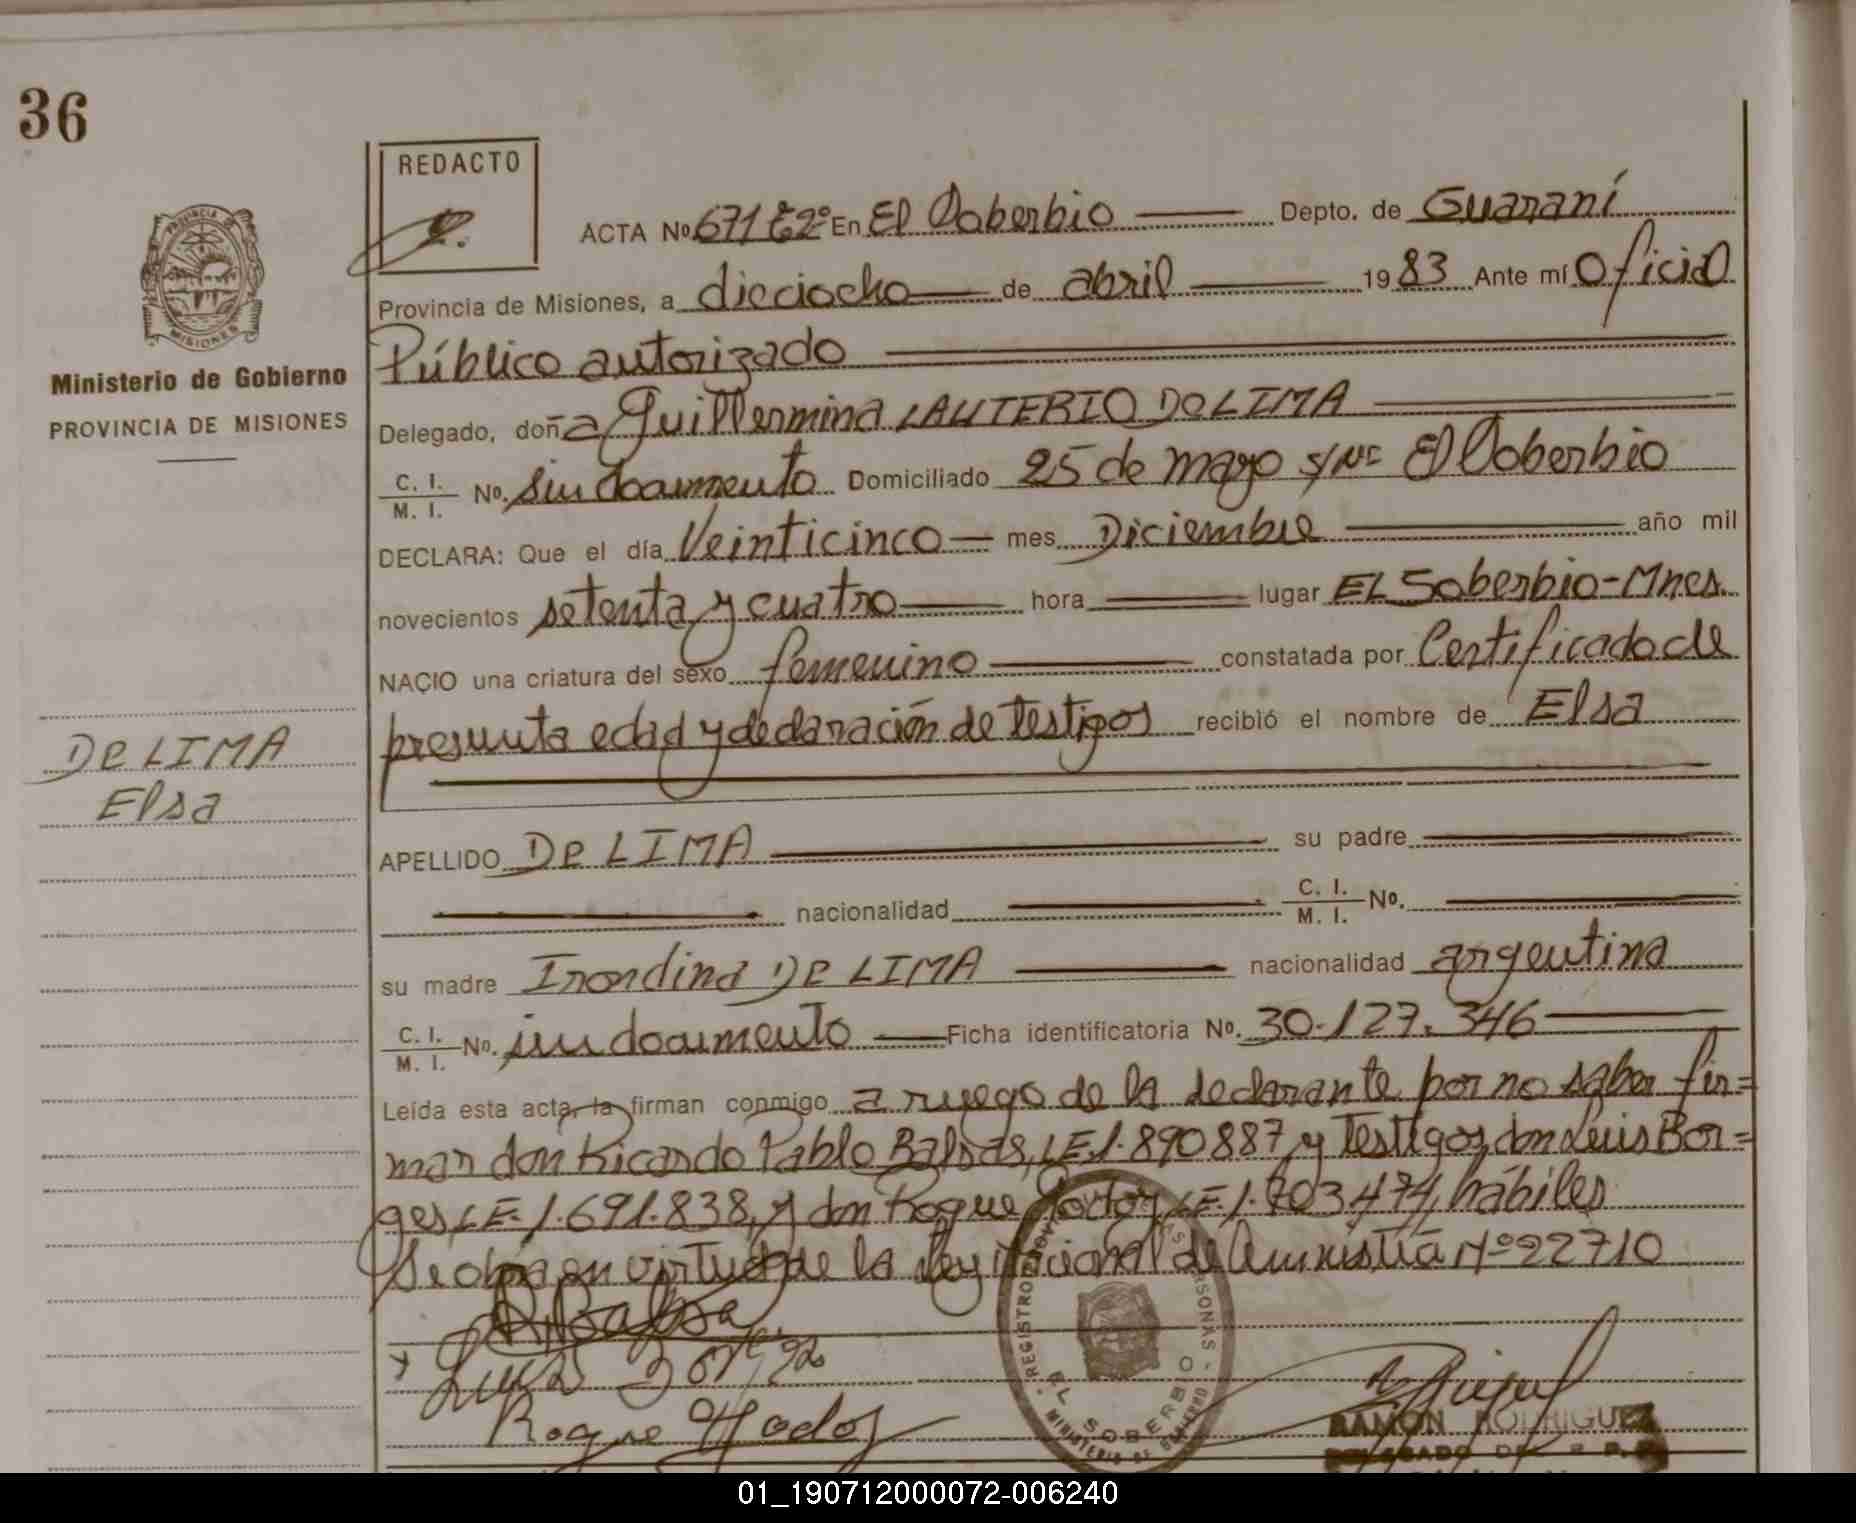 36
REDACTO
ACTA Nº 671 Tº2º En El Soberbio Depto. de Guaraní
Provincia de Misiones, a dieciocho de abril 1983 Ante mí Oficial
Público autorizado
Ministerio de Gobierno
PROVINCIA DE MISIONES
Delegado, doña Guillermina LAUTERIO DO LIMA
C. I.
M. I. Nº. sin documento Domiciliado 25 de mayo s/Nº El Soberbio
DECLARA: Que el día Veinticinco mes Diciembre año mil
novecientos setenta y cuatro hora lugar EL Soberbio-Mnes.
NACIO una criatura del sexo femenino constatada por Certificado de
presunta edad y declaración de Testigos recibió el nombre de Elsa
De LIMA
Elsa
APELLIDO De LIMA su padre
nacionalidad C. I.
M. I. Nº.
su madre Irondina De LIMA nacionalidad argentina
C. I.
M. I. Nº. sin documento Ficha identificatoria Nº. 30.127.346
Leída esta acta, la firman conmigo a ruego de la declarante por no saber fir=
mar don Ricardo Pablo Balsas, LE.1.890887, y Testigos, don Luis Bor=
ges, LE.1.691.838, y don Roque LE.1.703474, hábiles
Se obra en virtud de la Ley Nacional de Amnistía Nº 22710
Roque
REGISTRO PERSONAS
EL SOBERBIO
MINISTERIO DE GOBIERNO
RAMON RODRIGUEZ
DELEGADO DEL R. P.
MISIONES
01_190712000072-006240